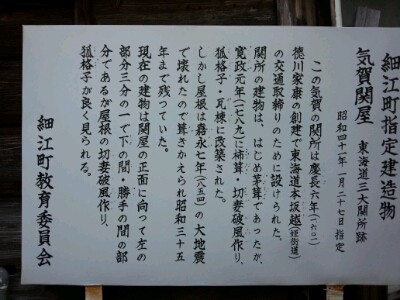 細江町指定建造物
気賀関屋 東海道三大関所跡
昭和四十一年一月二十七日指定
この気賀の関所は慶長六年(一六〇一)
徳川家康の創建で東海道本坂越(姫街道)
の交通取締りのために設けられた。
関所の建物は、はじめ茅葺であったが、
寛政元年(一七八九)に杮葺、切妻破風作り、
狐格子・瓦棟に改築された。
しかし屋根は嘉永七年(一八五四)の大地震
で壊れたので葺きかえられ昭和三十五
年まで残っていた。
現在の建物は関屋の正面に向って左の
部分三分の一で下の間・勝手の間の部
分であるが屋根の切妻破風作り、
狐格子が良く見られる。
細江町教育委員会